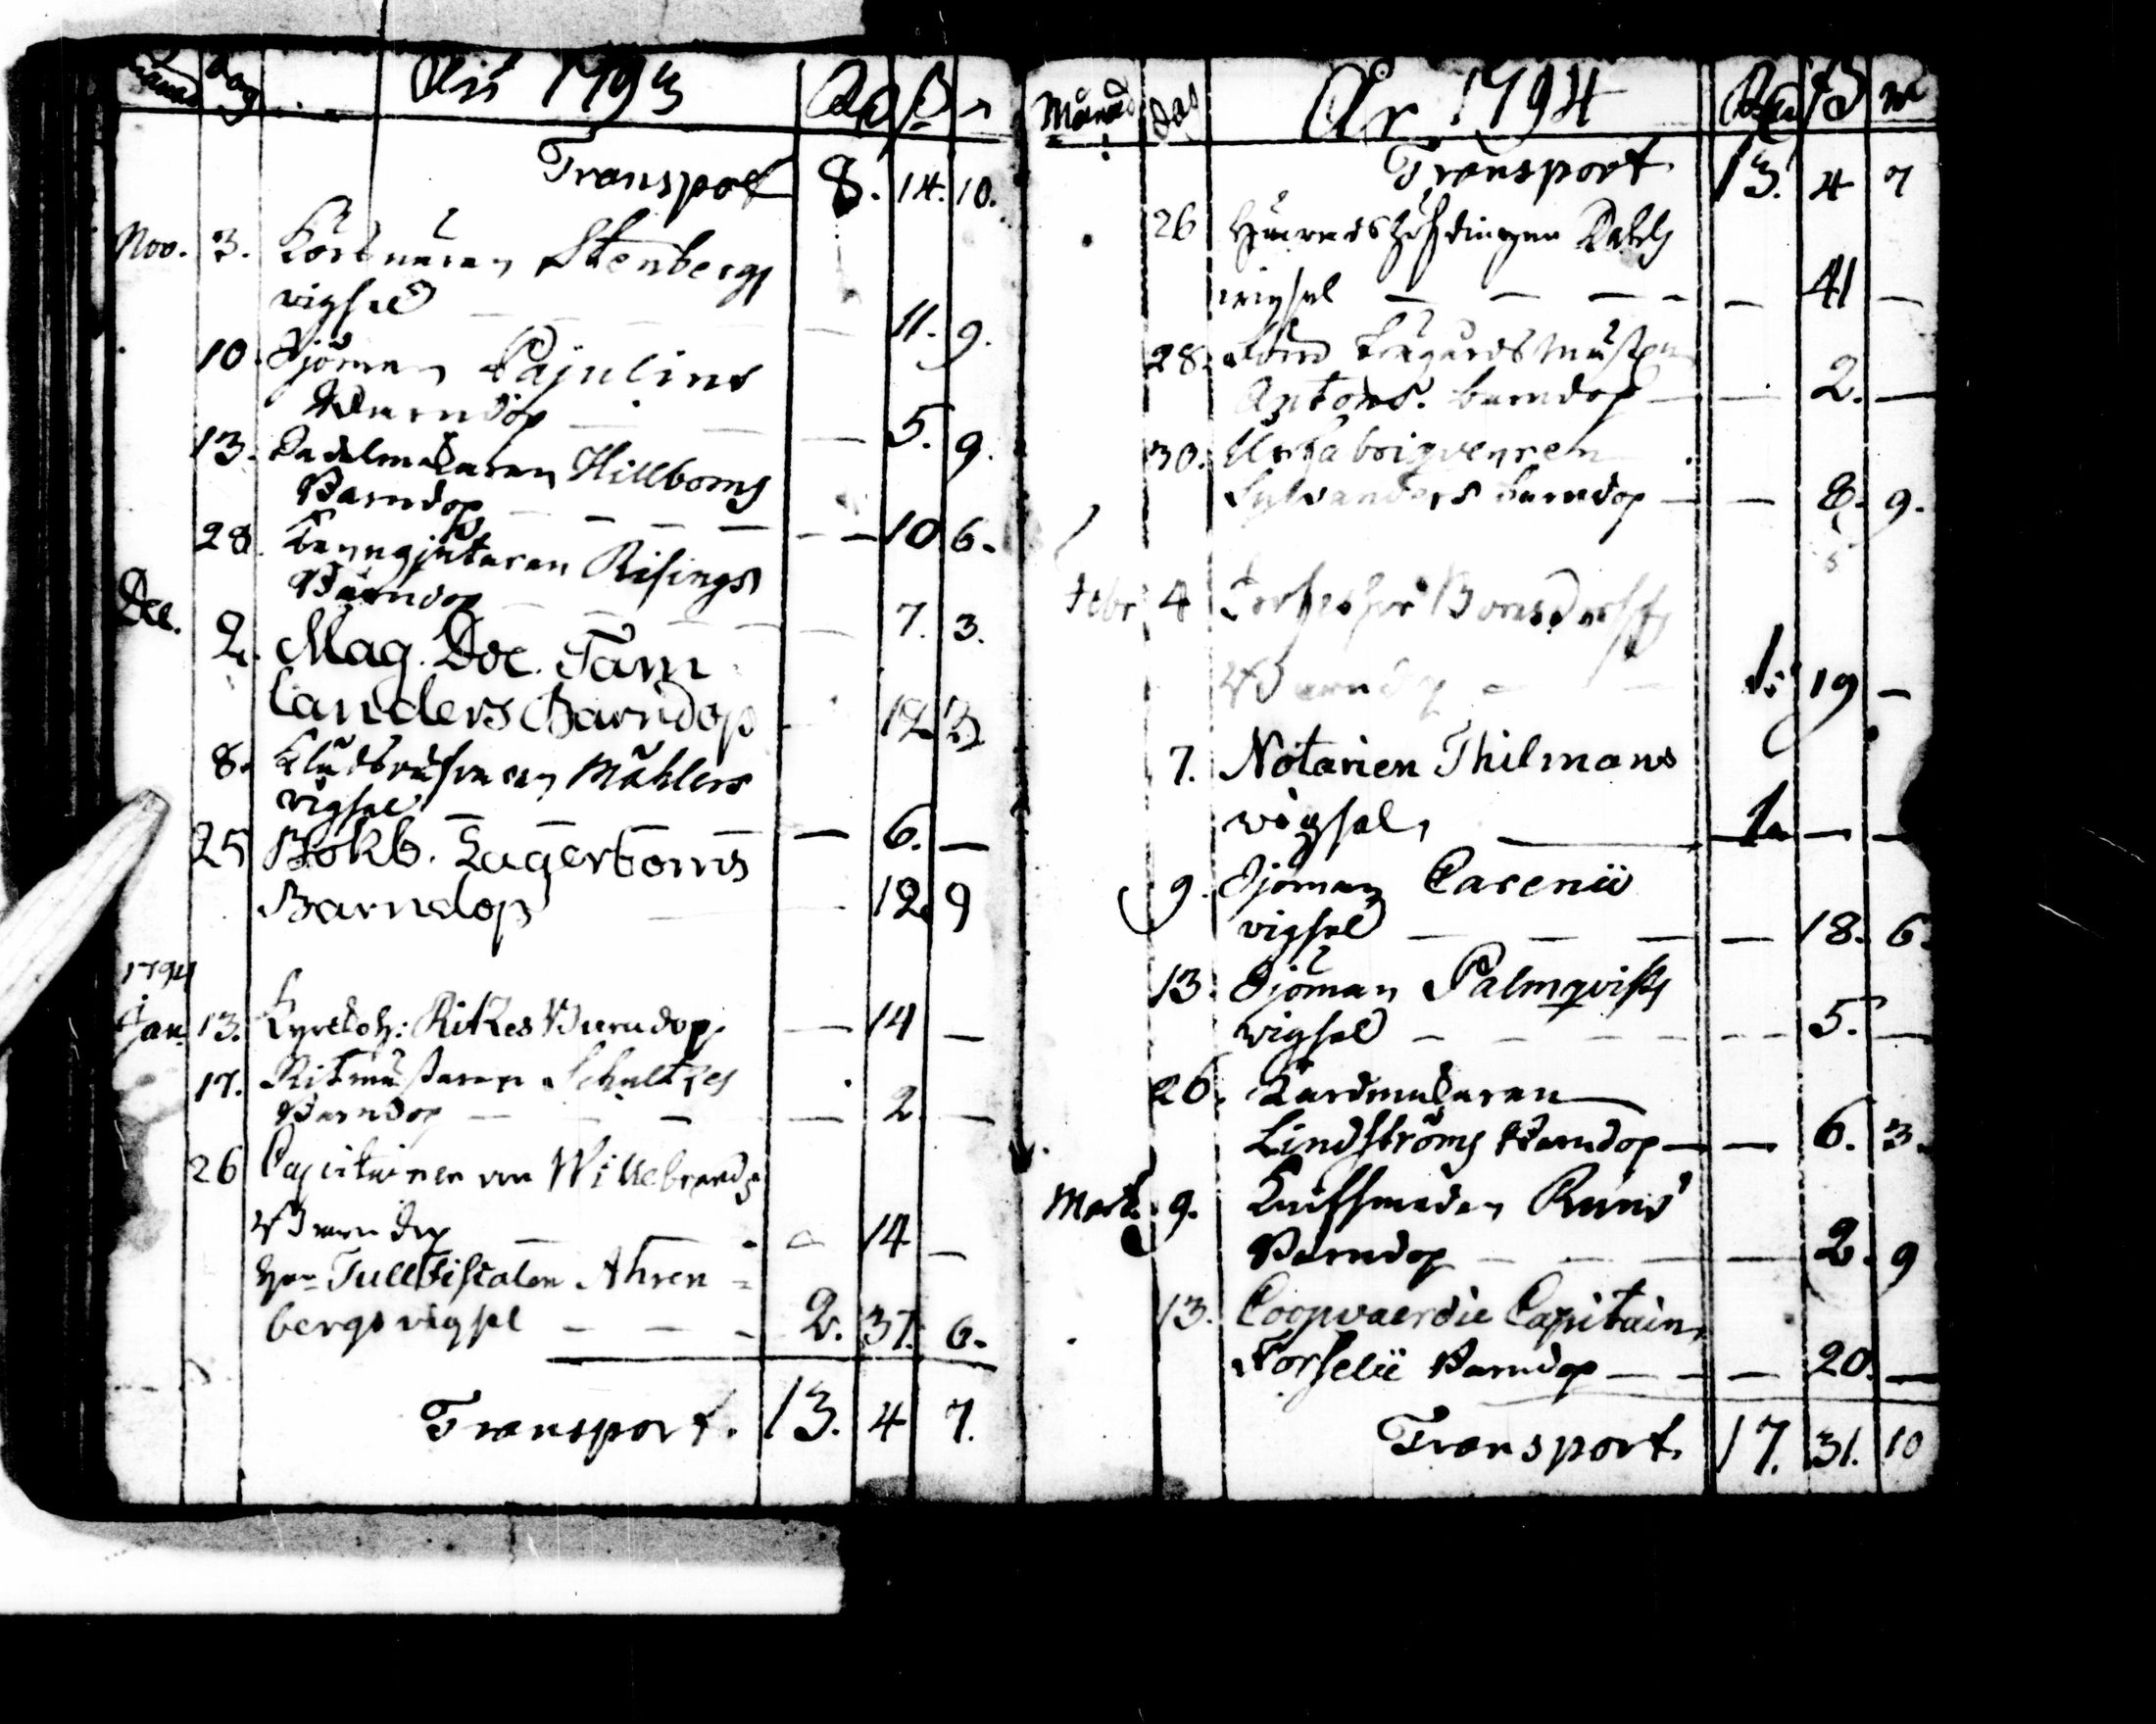 Månad dag År 1793 Rd ß
Transport 8. 14. 10.
Nov. 3. Körsnären Stenbergs
vigsel 11. 9.
10. Sjöman Pajulins
Barndop 5. 9.
13. Sadelmakaren Hillboms
Barndop 10 6.
28. Kanngjutaren Risings
Barndop 7. 3.
Dec. 2. Mag. Doc. Tam
landers Barndop 12 3
8. Klädesväfvaren Mählers
vigsel 6.
25 Bokb. Lagerboms
Barndop 12 9
1794
Jan. 13. Ritkes Barndop 14
17. Ritmästaren Schultzes
Barndop 2
26 Capitainen von Willebrands
Barndop 14
Tullfiscalen Ahren-
bergs vigsel 2. 37. 6.
Transport. 13. 4 7.
Månad dag År 1794
Transport 13. 4 7
26 Häradshöfdingen Dahls
vigsel 41
28. Trägårdsmästaren
Antons. barndop 2.
30. Urfabriqueuren
Sylvanders barndop 8. 9.
Febr 4 Professor Bonsdorffs
Barndop 1. 19
7. Notarien Thilmans
vigsel, 1.
9. Sjöman Carenii
vigsel 18. 6.
13. Sjöman Palmqvists
vigsel 5.
26. Kardmakaren
Lindströms Barndop 6. 3.
Mart. 9. Knifsmeden Runs
Barndop 2. 9
13. Coopvaerdie Capitain
Forselii Barndop 20.
Transport. 17. 31. 10